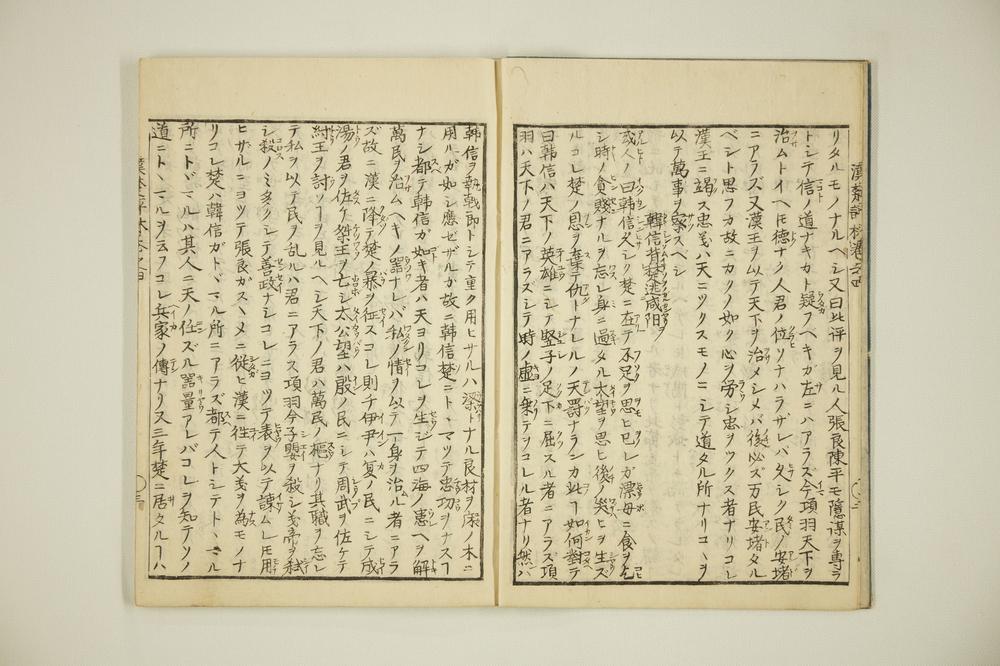 リタルモノナルベシ又曰此評ヲ見ル人張良陳平モ隠謀ヲ専ラ
トシテ信ノ道ナキカト疑フベキカ左ニハアラズ今項羽天下ヲ
治ムトイヘモ徳ナク人君ノ位ソナハラザレバ久シク民ノ安堵
ニアラズ又漢王ヲ以テ天下ヲ治メシメバ後必ズ万民安堵タル
ベシト思フカ故ニカクノ如ク心ヲ労シ忠ヲツクス者ナリコレ
漢王ニ竭ス忠義ハ天ニツクスモノニシテ道タル所ナリコヽヲ
以テ萬事ヲ察スベシ
韓信背楚逃咸陽
或人ノ曰韓信久シク楚ニ在テ不足ヲ思ヒ已レガ漂母ニ食ヲ乞
シ時ノ貧賤ナルヲ忘レ身ニ過タル大望ヲ思ヒ後ノ災ヒヲ生ズ
ルコレ楚ノ恩ヲ棄テ仇トナレルノ天罸ナランカ此ヿ如何對テ
曰韓信ハ天下ノ英雄ニシテ竪子ノ足下ニ屈スル者ニアラス項
羽ハ天下ノ君ニアラズシテ時ノ虚ニ乗テヲコル者ナリ然バ
韓信ヲ執戟郎トシテ重ク用ヒサルハ梁トナル良材ヲ床ノ木ニ
用ルガ如シ應ゼザルガ故ニ韓信楚ニトヽマツテ忠功ヲナスヿ
ナシ都テ韓信ガ如キ者ハ天ヨリコレヲ生シテ四海ノ患ヘヲ解
萬民ヲ治ムヘキノ器ナレバ私ノ情ヲ以テ一身ヲ治ル者ニアラ
ズ故ニ漢ニ降テ楚ノ暴ヲ征スコレ則チ伊尹ハ夏ノ民ニシテ成
湯ノ君ヲ佐ケ桀王ヲ亡シ太公望ハ殷ノ民ニシテ周武ヲ佐ケテ
紂王ヲ討ツヿヲ見ルベシ天下ノ君ハ萬民ノ樞ナリ其職ヲ忘レ
テ私ヲ以テ民ヲ乱ルハ君ニアラス項羽今子嬰ヲ殺シ義帝ヲ弑
シ殺ノミ多クシテ善政ナシコレニヨツテ表ヲ以テ諫ムレモ用
ヒザルニヨツテ張良カスヽメニ従ヒ漢ニ徃テ大義ヲ為モノナ
リコレ楚ハ韓信ガトヾマル所ニアラズ都テ人トシテトヽマル
所ニトドマルハ其人ニ天ノ任ズル器量アレバコレヲ知テソノ
道ニトヽマルヲ云フコレ兵家ノ傳ナリス三年楚ニ居タルヿハ